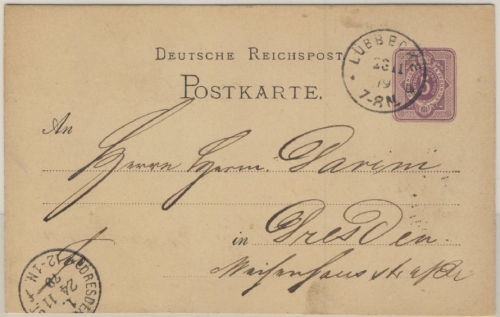 DEUTSCHE REICHSPOST
POSTKARTE.
LÜBBECKE
23 11
79
7-8N.
An
Herrn Herm. Darini
in Dresden.
Waisenhausstraße
DRESDEN
1.
24 11
79
12-1N.